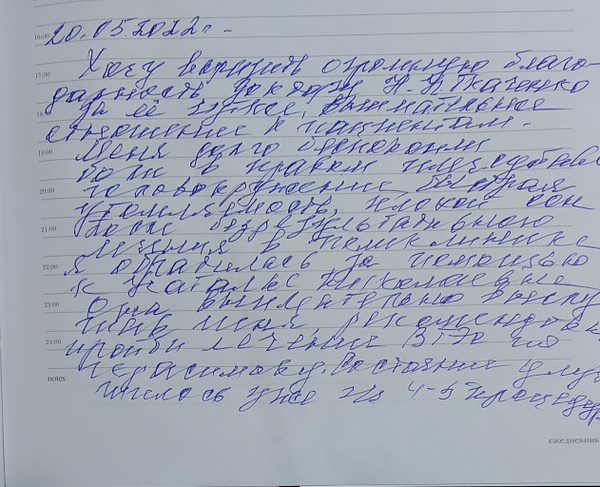 20.05.2022г.
16:00
Хочу выразить огромную благо-
17:00
дарность доктору Н.Н. Ткаченко
18:00
за её чуткое, внимательное
отношение к пациентам.
19:00
Меня долго беспокоили
боли в правом плече,
20:00
головокружение, быстрая
утомляемость, плохой сон
21:00
После безрезультатного
лечения в поликлинике
22:00
я обратилась за помощью
к Наталье Николаевне
23:00
Она внимательно выслу
шав меня рекомендова
24:00
пройти лечение по
Герасимову. Состояние улу
notes
чшилось уже на 4-5 процедур
ежедневник